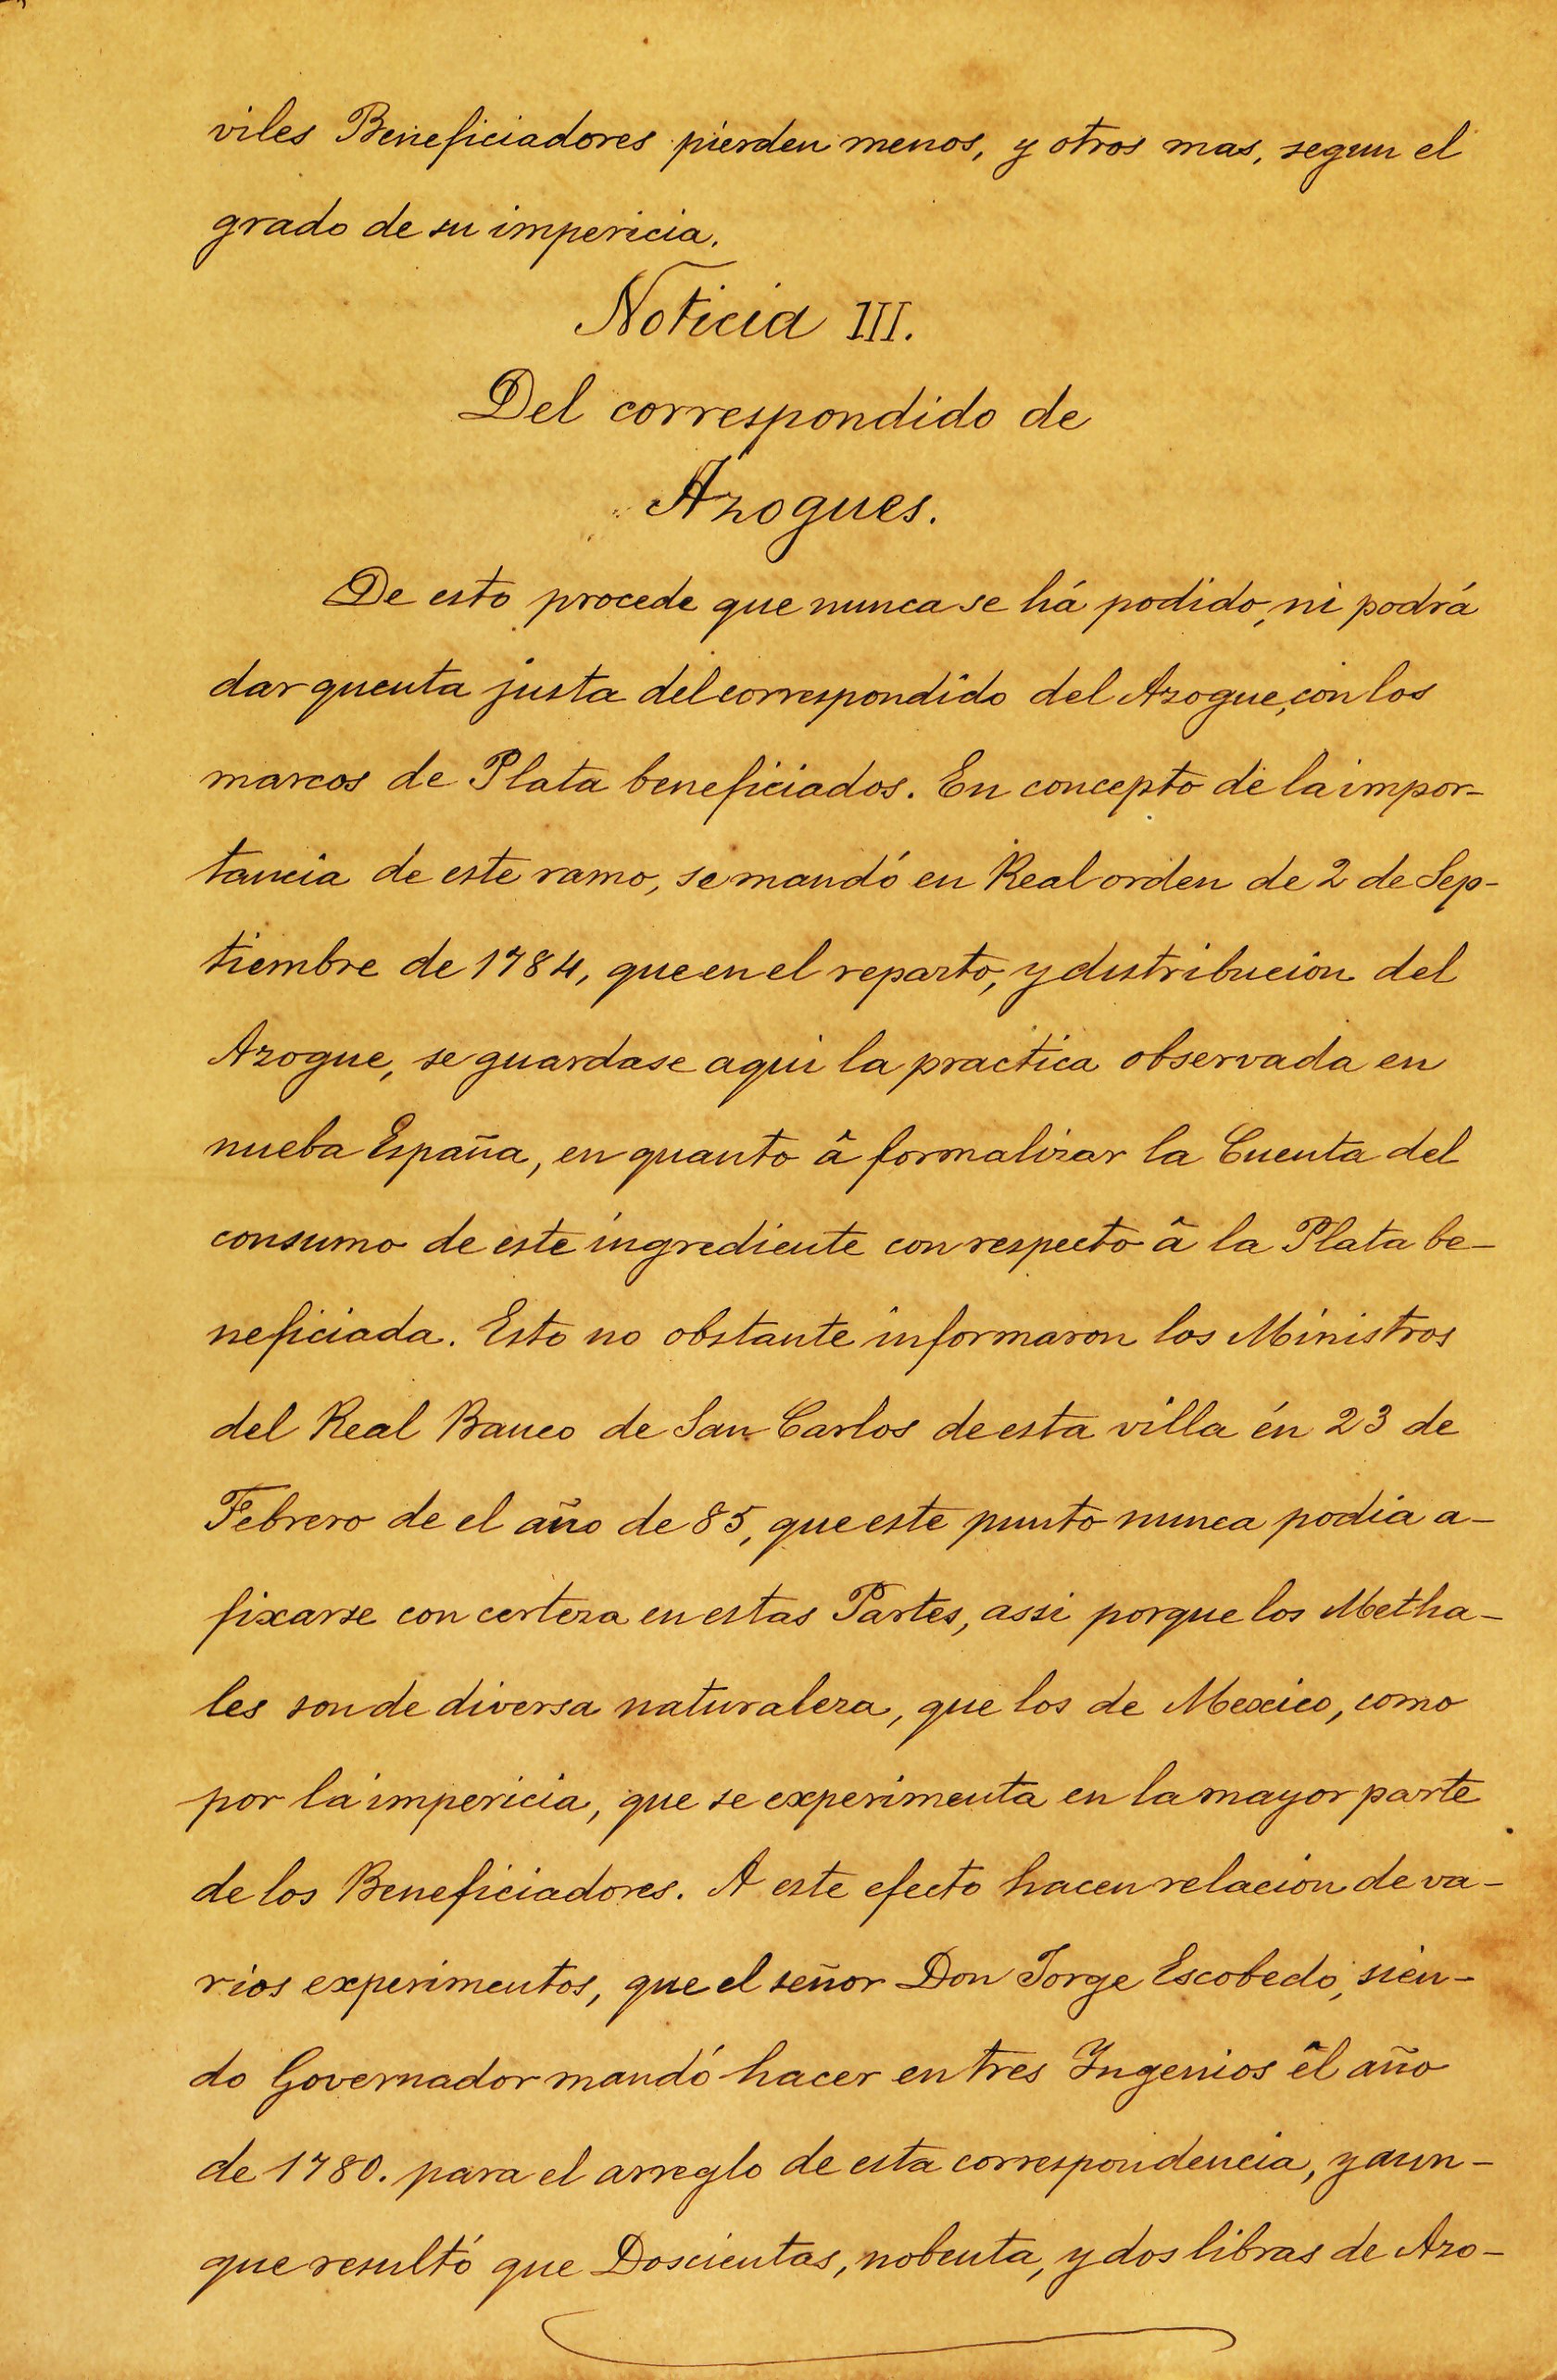 viles Beneficiadores pierden menos, y otros mas, segun el
grado de su impericia.
Noticia III.
Del correspondido de
Azogues.
De esto procede que nunca se há podido, ni podrá
dar quenta justa del correspondido del Azogue, con los
marcos de Plata beneficiados. En concepto de la impor-
tancia de este ramo, se mandó en Real orden de 2 de Sep-
tiembre de 1784, que en el reparto, y distribucion del
Azogue, se guardase aqui la practica observada en
nueba España, en quanto â formalizar la Cuenta del
consumo de este ingrediente con respecto â la Plata be-
neficiada. Esto no obstante informaron los Ministros
del Real Banco de San Carlos de esta villa én 23 de
Febrero de el año de 85, que este punto nunca podia a-
fixarse con certeza en estas Partes, assi porque los Metha-
les son de diversa naturaleza, que los de Mexico, como
por la impericia, que se experimenta en la mayor parte
de los Beneficiadores. A este efecto hacen relacion de va-
rios experimentos, que el señor Don Jorge Escobedo, sien-
do Governador mandó hacer en tres Ingenios êl año
de 1780. para el arreglo de esta correspondencia, y aun-
que resultó que Doscientas, nobenta, y dos libras de Azo-